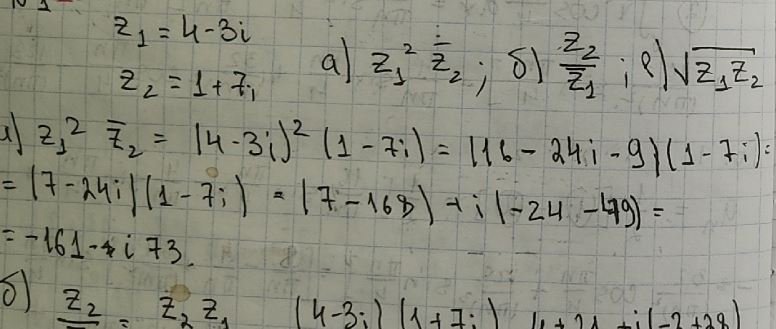 z₁ = 4-3i
z₂ = 1+7i
а) z₁² z̄₂ ; б) z₂/z̄₁ ; в) √(z₁z₂)
а) z₁² z̄₂ = (4-3i)² (1-7i) = (16-24i-9)(1-7i) =
= (7-24i)(1-7i) = (7-168) + i(-24-49) =
= -161 - i73.
б) z₂ = z₂ z₁ (4-3i)(1+7i) 4+21+i(-3+28)